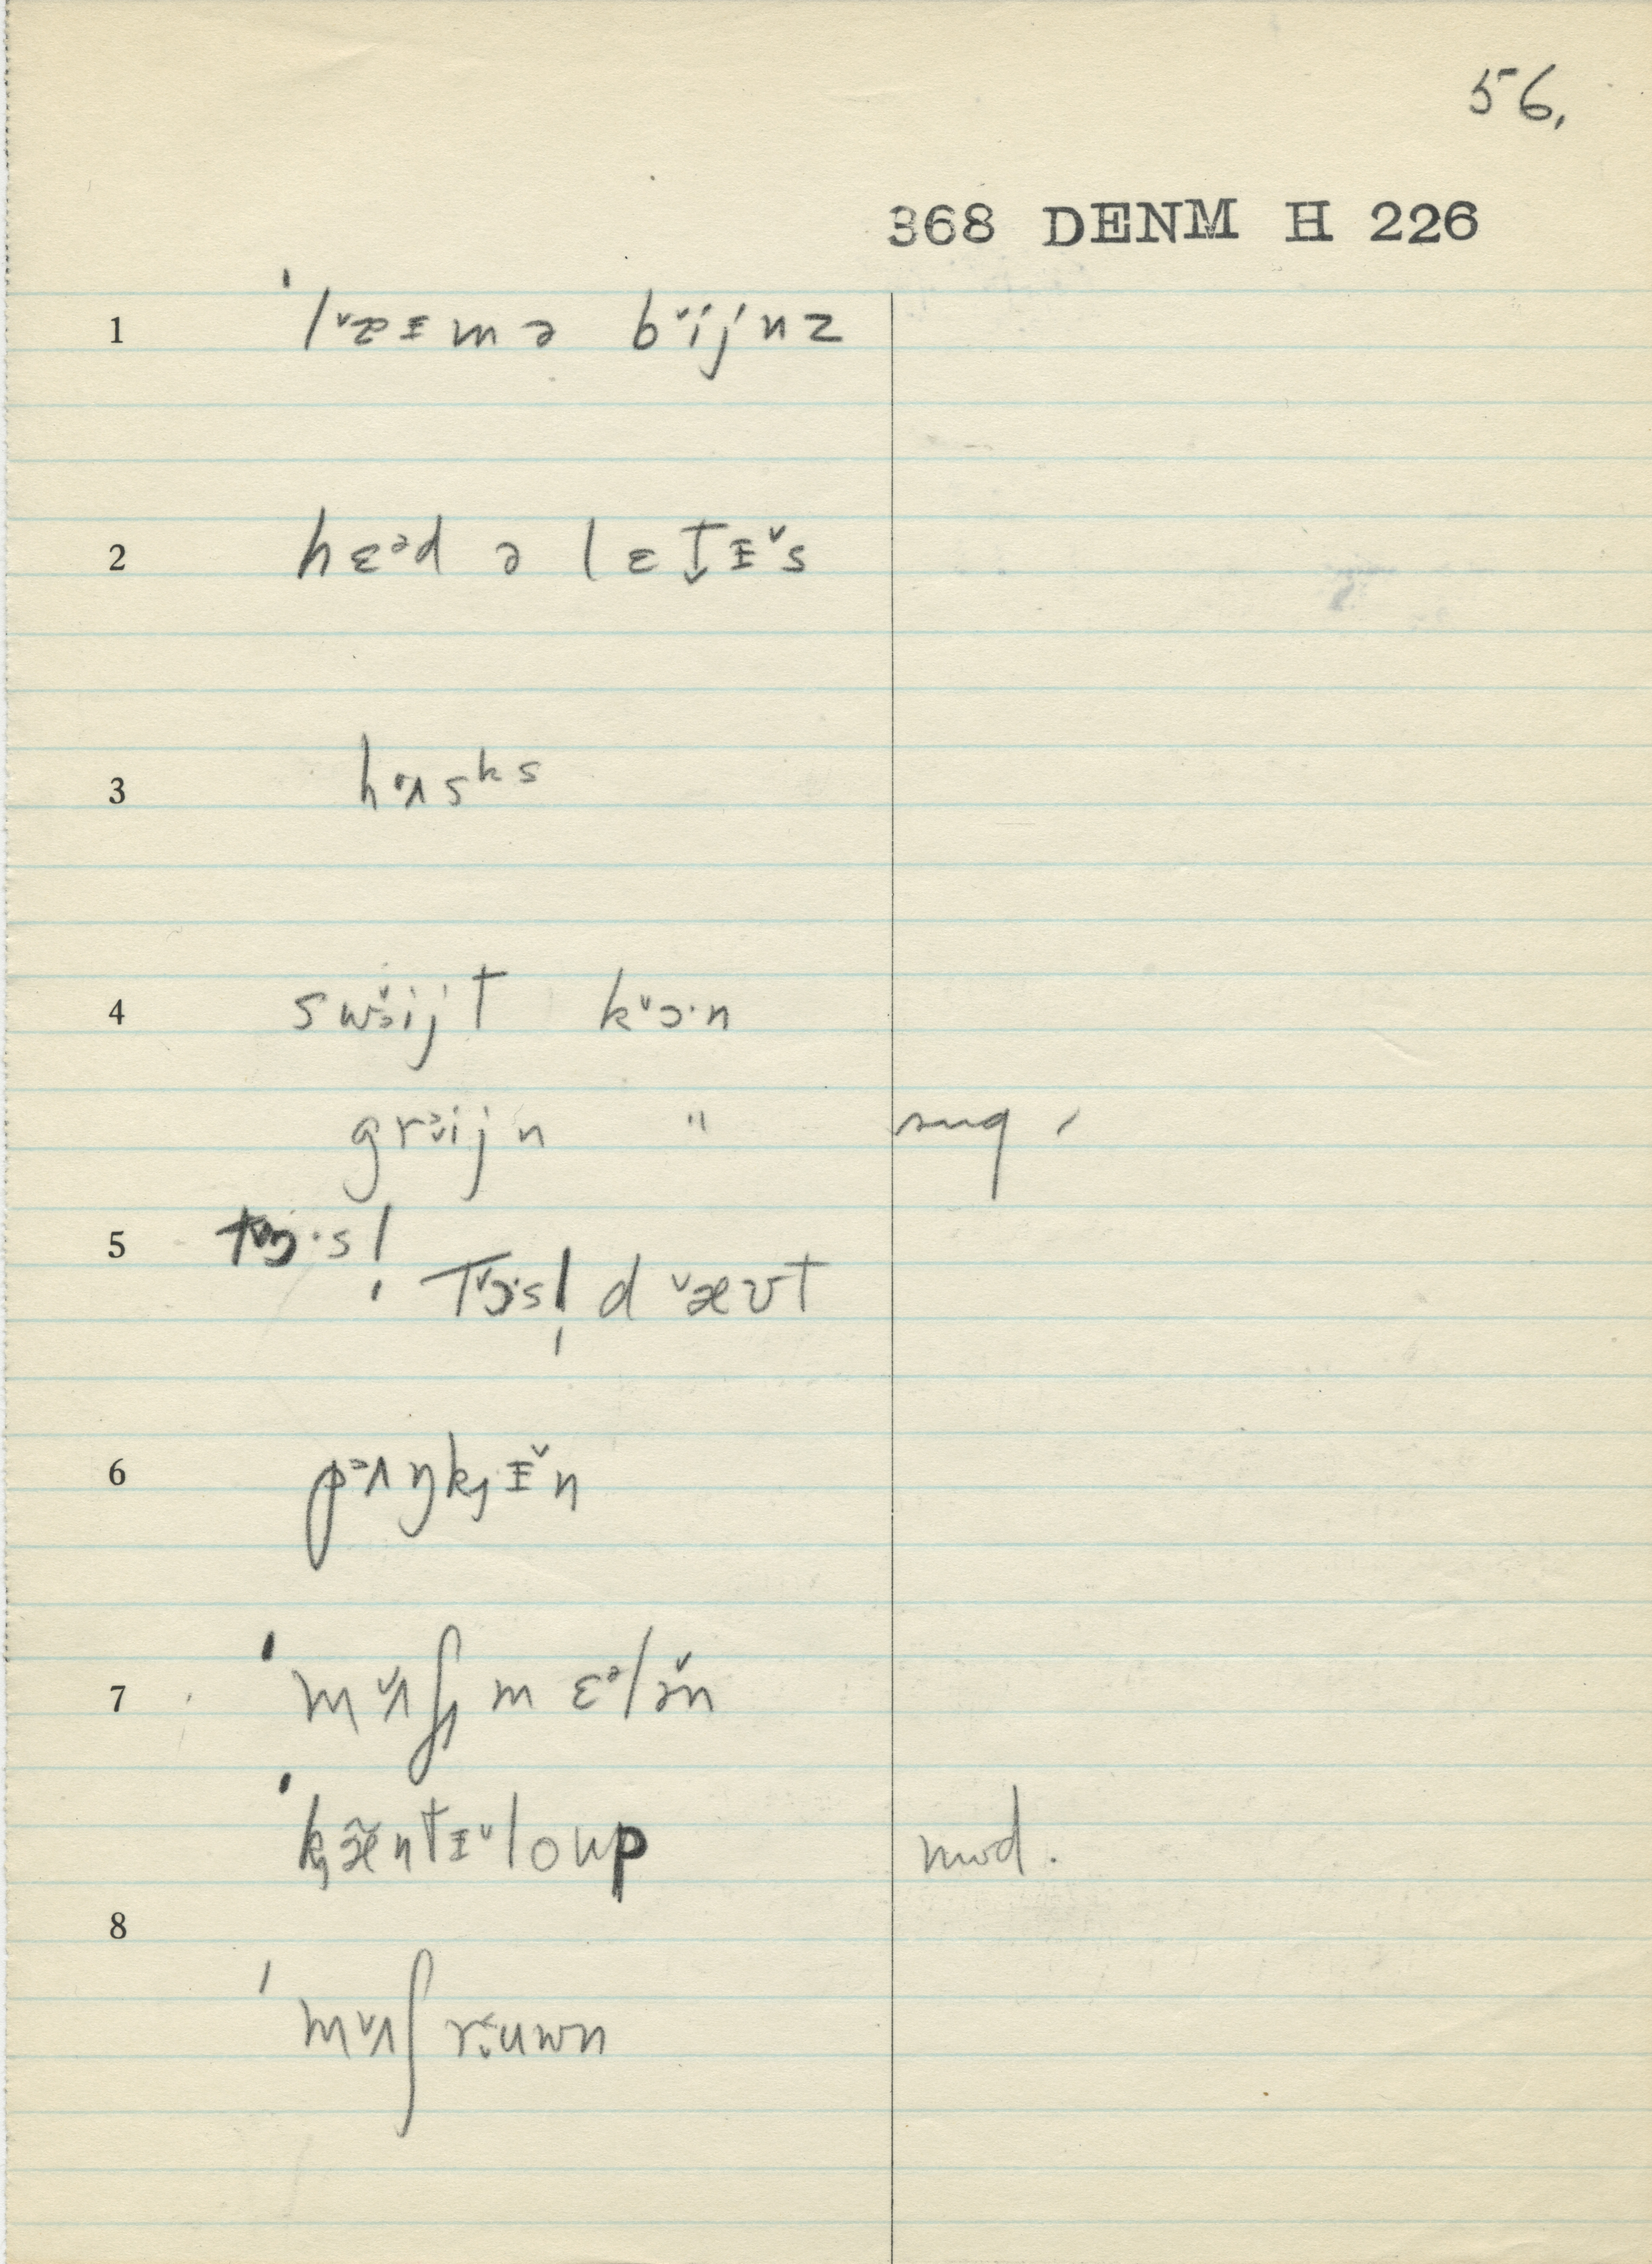 56.
368 DENM H 226
1 ˈl˅æɪmə b˅ijnz
2 hɛᵊd ə lɛt̬ɪ˅s
3 hʌsᵏˢ
4 sw˅ɜijt k˅ɔ·n
grɜijn " sug.
5 t˅ɔ·s!
t˅ɔ·s! d˅æʊt
6 pʌŋkɪ˅n
7 ˈm˅ʌʃmɛᵊlə˅n
ˈkæ̃ntɪ˅loup mod.
8
ˈm˅ʌʃruwn